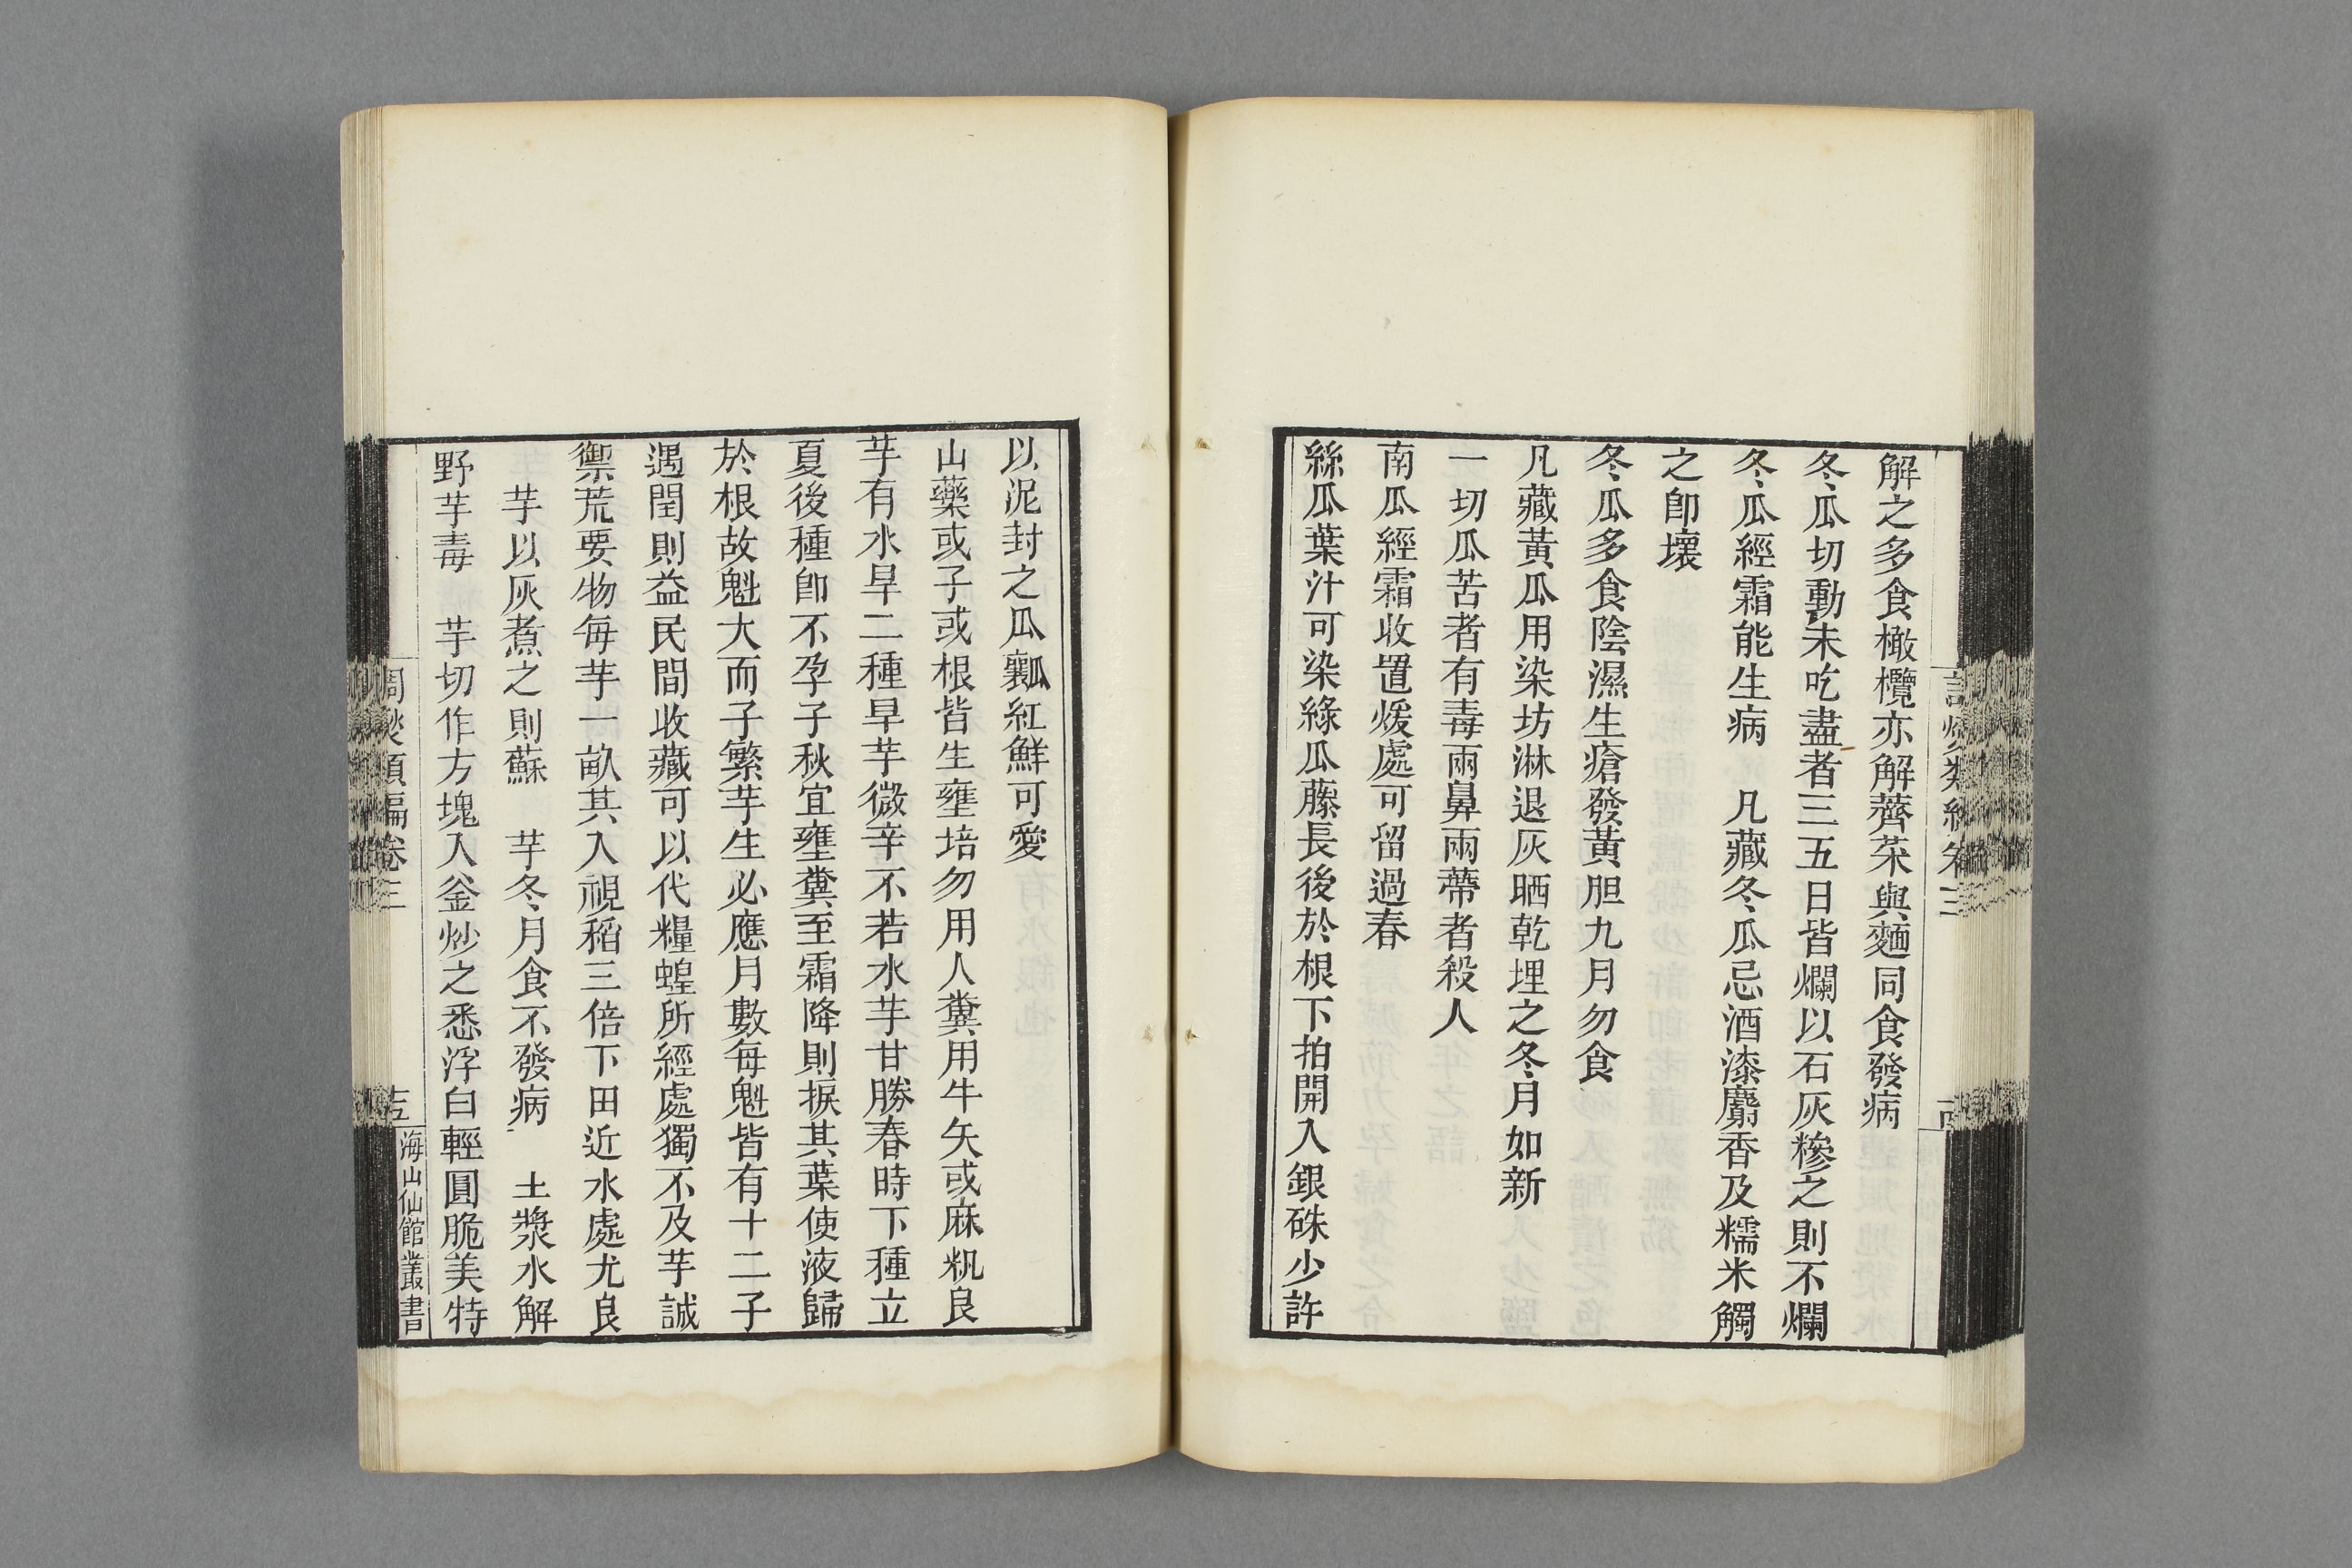 解之多食橄欖亦解薺菜與麵同食發病
冬瓜切動未吃盡者三五日皆爛以石灰糝之則不爛
冬瓜經霜能生病　凡藏冬瓜忌酒漆麝香及糯米觸
之卽壞
冬瓜多食陰濕生瘡發黃胆九月勿食
凡藏黃瓜用染坊淋退灰晒乾埋之冬月如新
一切瓜苦者有毒兩鼻兩蔕者殺人
南瓜經霜收置煖處可留過春
絲瓜葉汁可染綠瓜藤長後於根下拍開入銀硃少許
以泥封之瓜瓤紅鮮可愛
山藥或子或根皆生壅培勿用人糞用牛矢或麻籸良
芋有水旱二種旱芋微辛不若水芋甘勝春時下種立
夏後種卽不孕子秋宜壅糞至霜降則捩其葉使液歸
於根故魁大而子繁芋生必應月數每魁皆有十二子
遇閏則益民間收藏可以代糧蝗所經處獨不及芋誠
禦荒要物每芋一畝其入視稻三倍下田近水處尤良
芋以灰煮之則蘇　芋冬月食不發病　土漿水解
野芋毒　芋切作方塊入釜炒之悉浮白輕圓脆美特
調燮類編卷三
海山仙館叢書